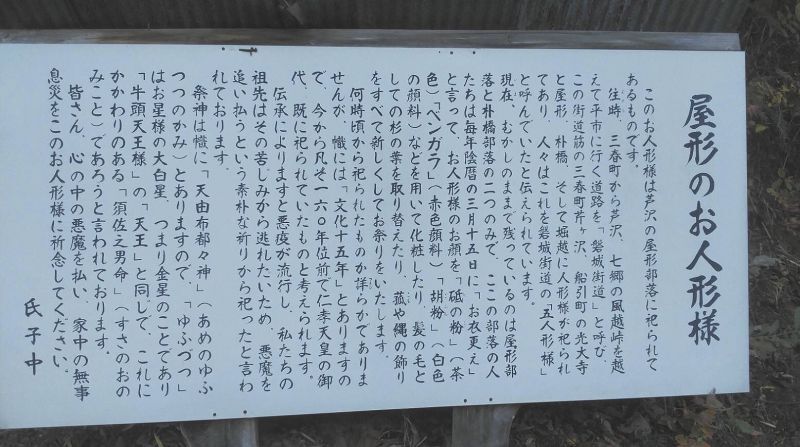 屋形のお人形様
このお人形様は芦沢の屋形部落に祀られて
あるものです。
往時、三春町から芦沢、七郷の風越峠を越
えて平市に行く道路を「磐城街道」と呼び
この街道筋の三春町芹ヶ沢、船引町の光大寺
と屋形、朴橋、そして堀越に人形様が祀られ
てあり、人々はこれを磐城街道の「五人形様」
と呼んでいたと伝えられています。
現在、むかしのままで残っているのは屋形部
落と朴橋部落の二つのみで、ここの部落の人
たちは毎年陰暦の三月十五日に「お衣更え」
と言って、お人形様のお顔を「砥の粉」(茶
色)「ベンガラ」(赤色顔料)「胡粉」(白色
の顔料)などを用いて化粧したり、髪の毛と
しての杉の葉を取り替えたり、菰や縄の飾り
をすべて新しくしてお祭りをいたします。
何時頃から祀られたものか詳らかでありま
せんが、幟には「文化十五年」とありますの
で、今から凡そ一六〇年位前で仁孝天皇の御
代、既に祀られていたものと考えられます。
伝承によりますと悪疫が流行し、私たちの
祖先はその苦しみから逃れたいため、悪魔を
追い払うという素朴な祈りから祀ったと言わ
れております。
祭神は幟に「天由布都々神」(あめのゆふ
つつのかみ)とありますので、「ゆふづつ」
はお星様の大白星、つまり金星のことであり
「牛頭天王様」の「天王」と同じで、これに
かかわりのある「須佐之男命」(すさのおの
みこと)であろうと言われております。
皆さん、心の中の悪魔を払い、家中の無事
息災をこのお人形様に祈念してください。
氏子中